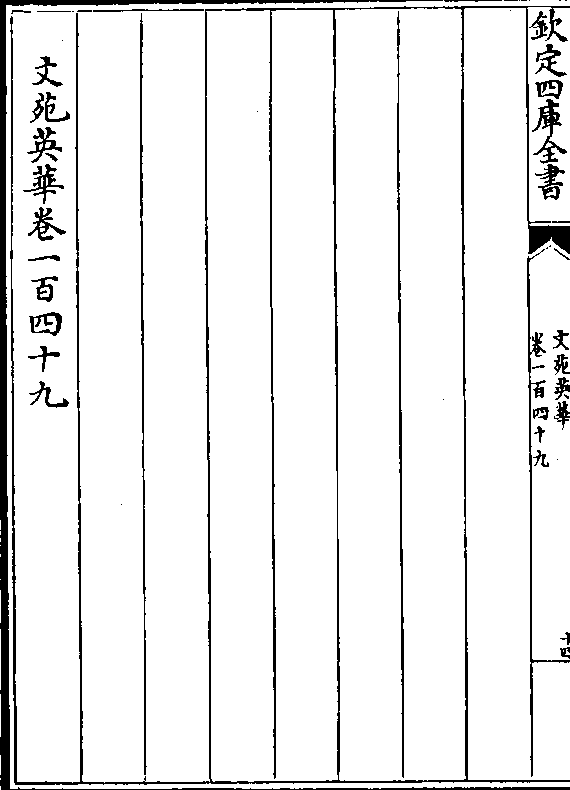 欽定四庫全書
文苑英華
卷一百四十九
十四
文苑英華卷一百四十九